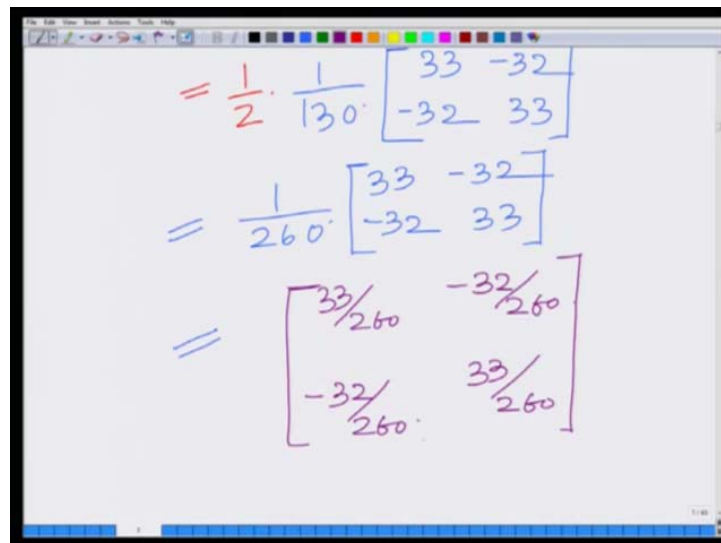 File Edit View Insert Actions Tools Help
= 1/2 · 1/130 · [33 -32
-32 33]
= 1/260 · [33 -32
-32 33]
= [33/260 -32/260
-32/260 33/260]